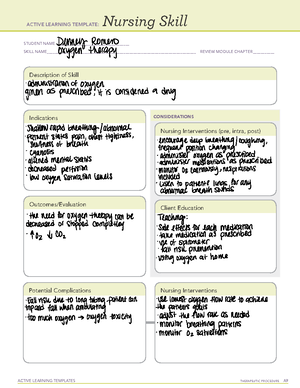 ACTIVE LEARNING TEMPLATE: Nursing Skill
STUDENT NAME Romero
SKILL NAME oxygen therapy REVIEW MODULE CHAPTER
Description of Skill
administration of oxygen
given as prescribed, it is considered a drug
Indications
Shallow rapid breathing/abnormal
chest tightness,
shortness of breath
cyanosis
altered mental status
decreased
low oxygen saturation levels
CONSIDERATIONS
Nursing Interventions (pre, intra, post)
encourage deep breathing/coughing,
frequent position changing
administer oxygen as prescribed
administer medications as prescribed
monitor O2 respirations
included
listen to patients lungs for any
abnormal breath sounds
Outcomes/Evaluation
the need for oxygen therapy can be
decreased or stopped completely
↑O2 ↓CO2
Client Education
Teaching:
side effects for each medication
take medication as prescribed
use of spirometer
fall risk prevention
using oxygen at home
Potential Complications
fall risk due to long tubing patient can
trip and fall when ambulating
too much oxygen → oxygen toxicity
Nursing Interventions
use lowest oxygen flow rate to achieve
the patient goals
adjust the flow rate as needed
monitor breathing patterns
monitor O2 saturations
ACTIVE LEARNING TEMPLATES
THERAPEUTIC PROCEDURE